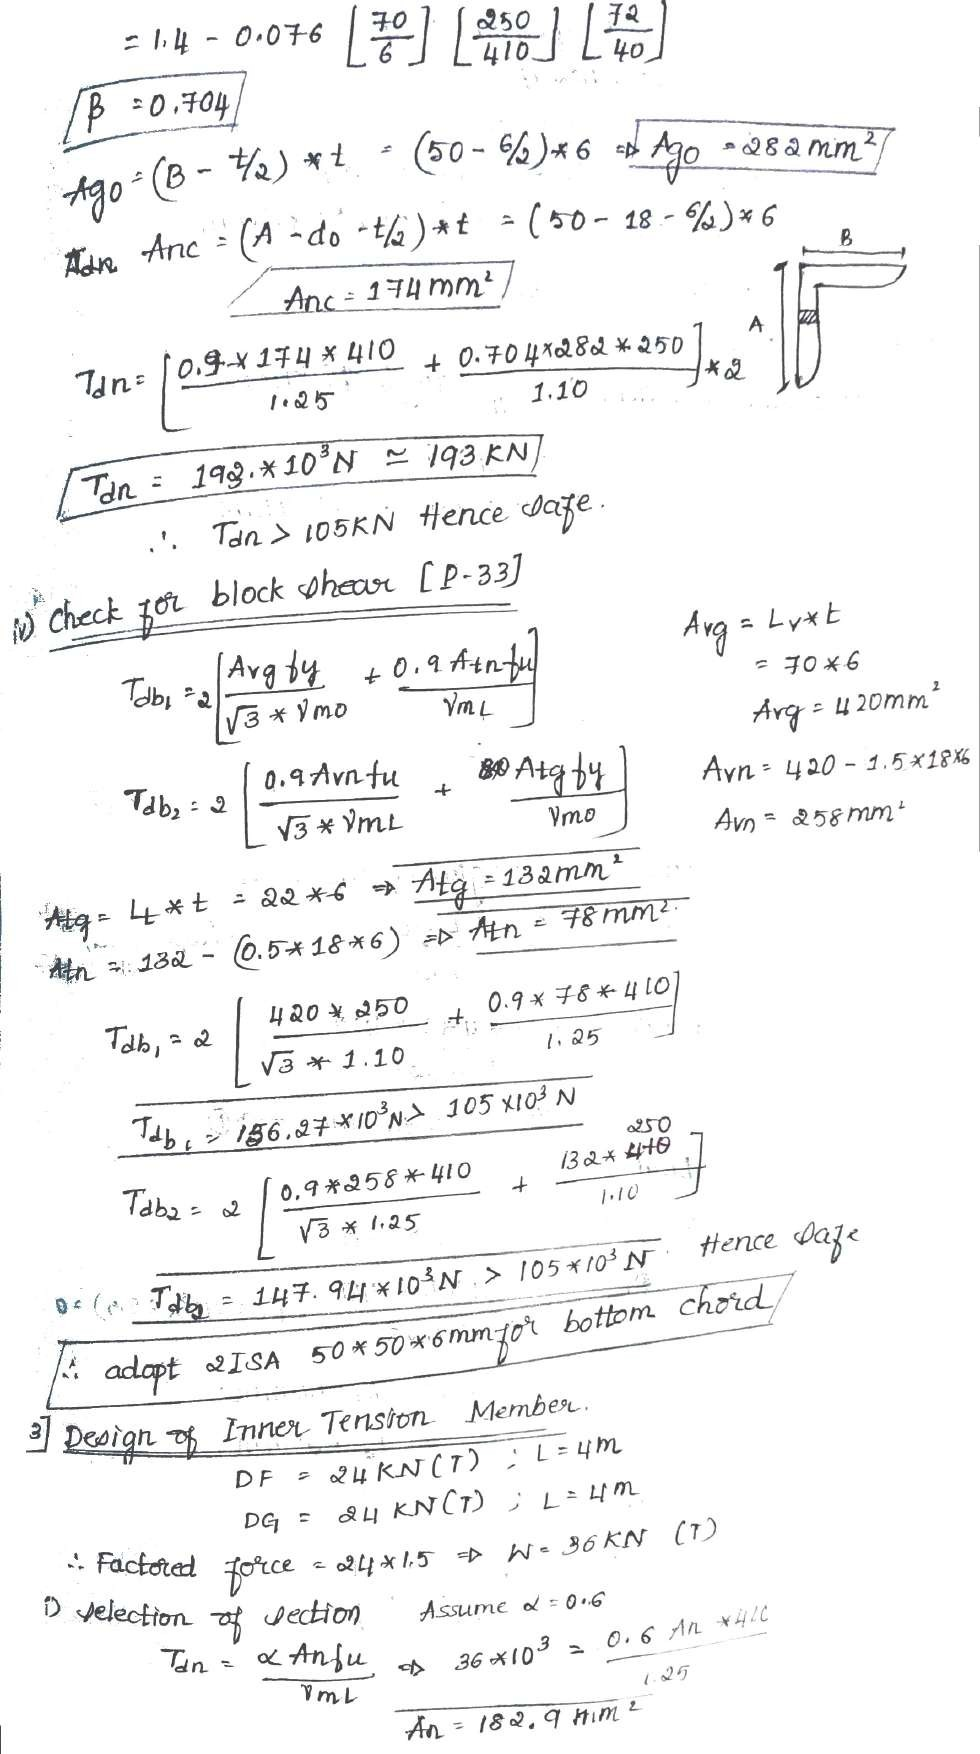 = 1.4 - 0.076 [70/6] [250/410] [72/40]
β = 0.704
Ago = (B - t/2) * t = (50 - 6/2) * 6 ⇒ Ago = 282 mm²
Anc = (A - do - t/2) * t = (50 - 18 - 6/2) * 6
Anc = 174 mm²
B
A
Tdn = [0.9 x 174 * 410 / 1.25 + 0.704 x 282 * 250 / 1.10] * 2
Tdn = 193. * 10³ N ≃ 193 KN
∴ Tdn > 105KN Hence safe.
iv) Check for block shear [P-33]
Avg = Lv * t
= 70 * 6
Avg = 420mm²
Tdb1 = 2 [Avg fy / √3 * γmo + 0.9 Atn fu / γmL]
Avn = 420 - 1.5 * 18 * 6
Avn = 258mm²
Tdb2 = 2 [0.9 Avn fu / √3 * γmL + Atg fy / γmo]
Atg = Lt * t = 22 * 6 ⇒ Atg = 132mm²
Atn = 132 - (0.5 * 18 * 6) ⇒ Atn = 78mm².
Tdb1 = 2 [420 * 250 / √3 * 1.10 + 0.9 * 78 * 410 / 1.25]
Tdb1 = 156.27 x 10³ N > 105 x 10³ N
Tdb2 = 2 [0.9 * 258 * 410 / √3 * 1.25 + 132 * 250 / 1.10]
Tdb2 = 147.94 * 10³ N > 105 * 10³ N Hence safe
∴ adopt 2ISA 50 * 50 * 6mm for bottom chord
3] Design of Inner Tension Member.
DF = 24 KN (T) ; L = 4m
DG = 24 KN (T) ; L = 4m
∴ Factored force = 24 x 1.5 ⇒ W = 36KN (T)
i) selection of section Assume α = 0.6
Tdn = α An fu / γmL ⇒ 36 * 10³ = 0.6 An * 410 / 1.25
An = 182.9 mm²